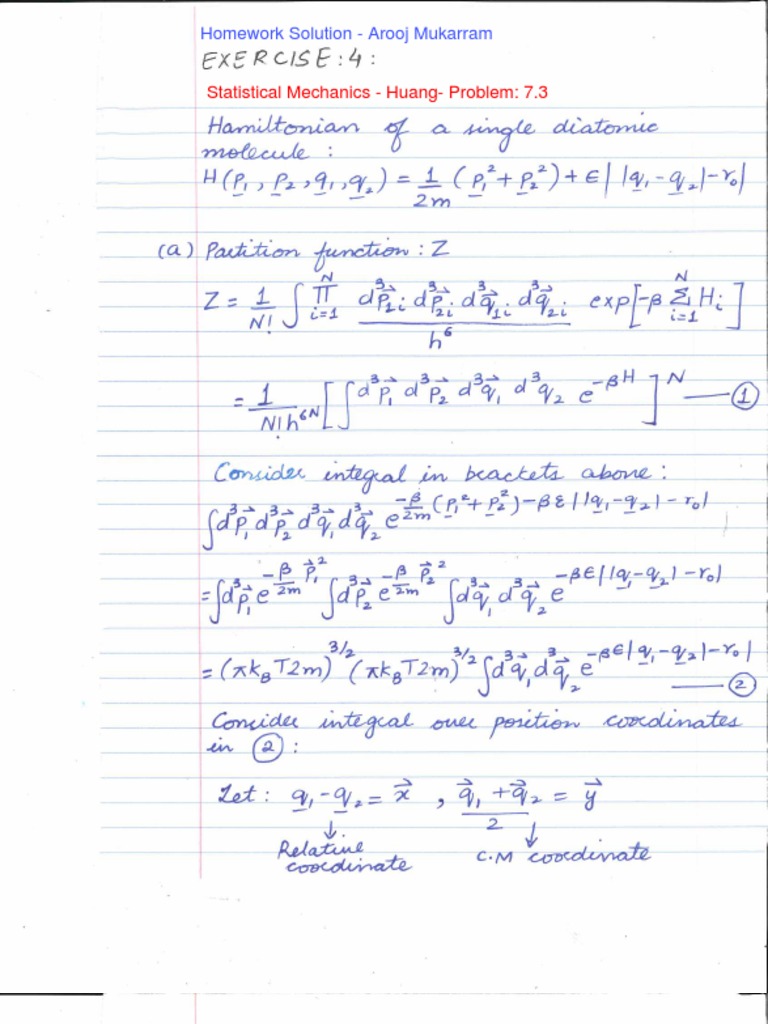 Homework Solution - Arooj Mukarram
EXERCISE:4:
Statistical Mechanics - Huang- Problem: 7.3
Hamiltonian of a single diatomic
molecule :
H(p₁, p₂, q₁, q₂) = 1/2m (p₁² + p₂²) + ϵ| |q₁ - q₂| - r₀|
(a) Partition function : Z
Z = 1/N! ∫ ∏_{i=1}^{N} d³p⃗₁ᵢ d³p⃗₂ᵢ d³q⃗₁ᵢ d³q⃗₂ᵢ / h⁶ exp[-β Σ_{i=1}^{N} Hᵢ]
= 1/N!h^{6N} [∫ d³p⃗₁ d³p⃗₂ d³q⃗₁ d³q₂ e^{-βH}]^N — ①
Consider integral in brackets above :
∫d³p⃗₁ d³p⃗₂ d³q⃗₁ d³q⃗₂ e^{-β/2m (p₁² + p₂²) - βε| |q₁ - q₂| - r₀|}
= ∫d³p⃗₁ e^{-β/2m p⃗₁²} ∫d³p⃗₂ e^{-β/2m p⃗₂²} ∫d³q⃗₁ d³q⃗₂ e^{-βϵ| |q₁ - q₂| - r₀|}
= (πk_BT2m)^{3/2} (πk_BT2m)^{3/2} ∫d³q⃗₁ d³q⃗₂ e^{-βϵ| q₁ - q₂| - r₀|}
— ②
Consider integral over position coordinates
in ② :
Let : q₁ - q₂ = x⃗ , q⃗₁ + q⃗₂ / 2 = y⃗
↓ ↓
Relative C.M coordinate
coordinate